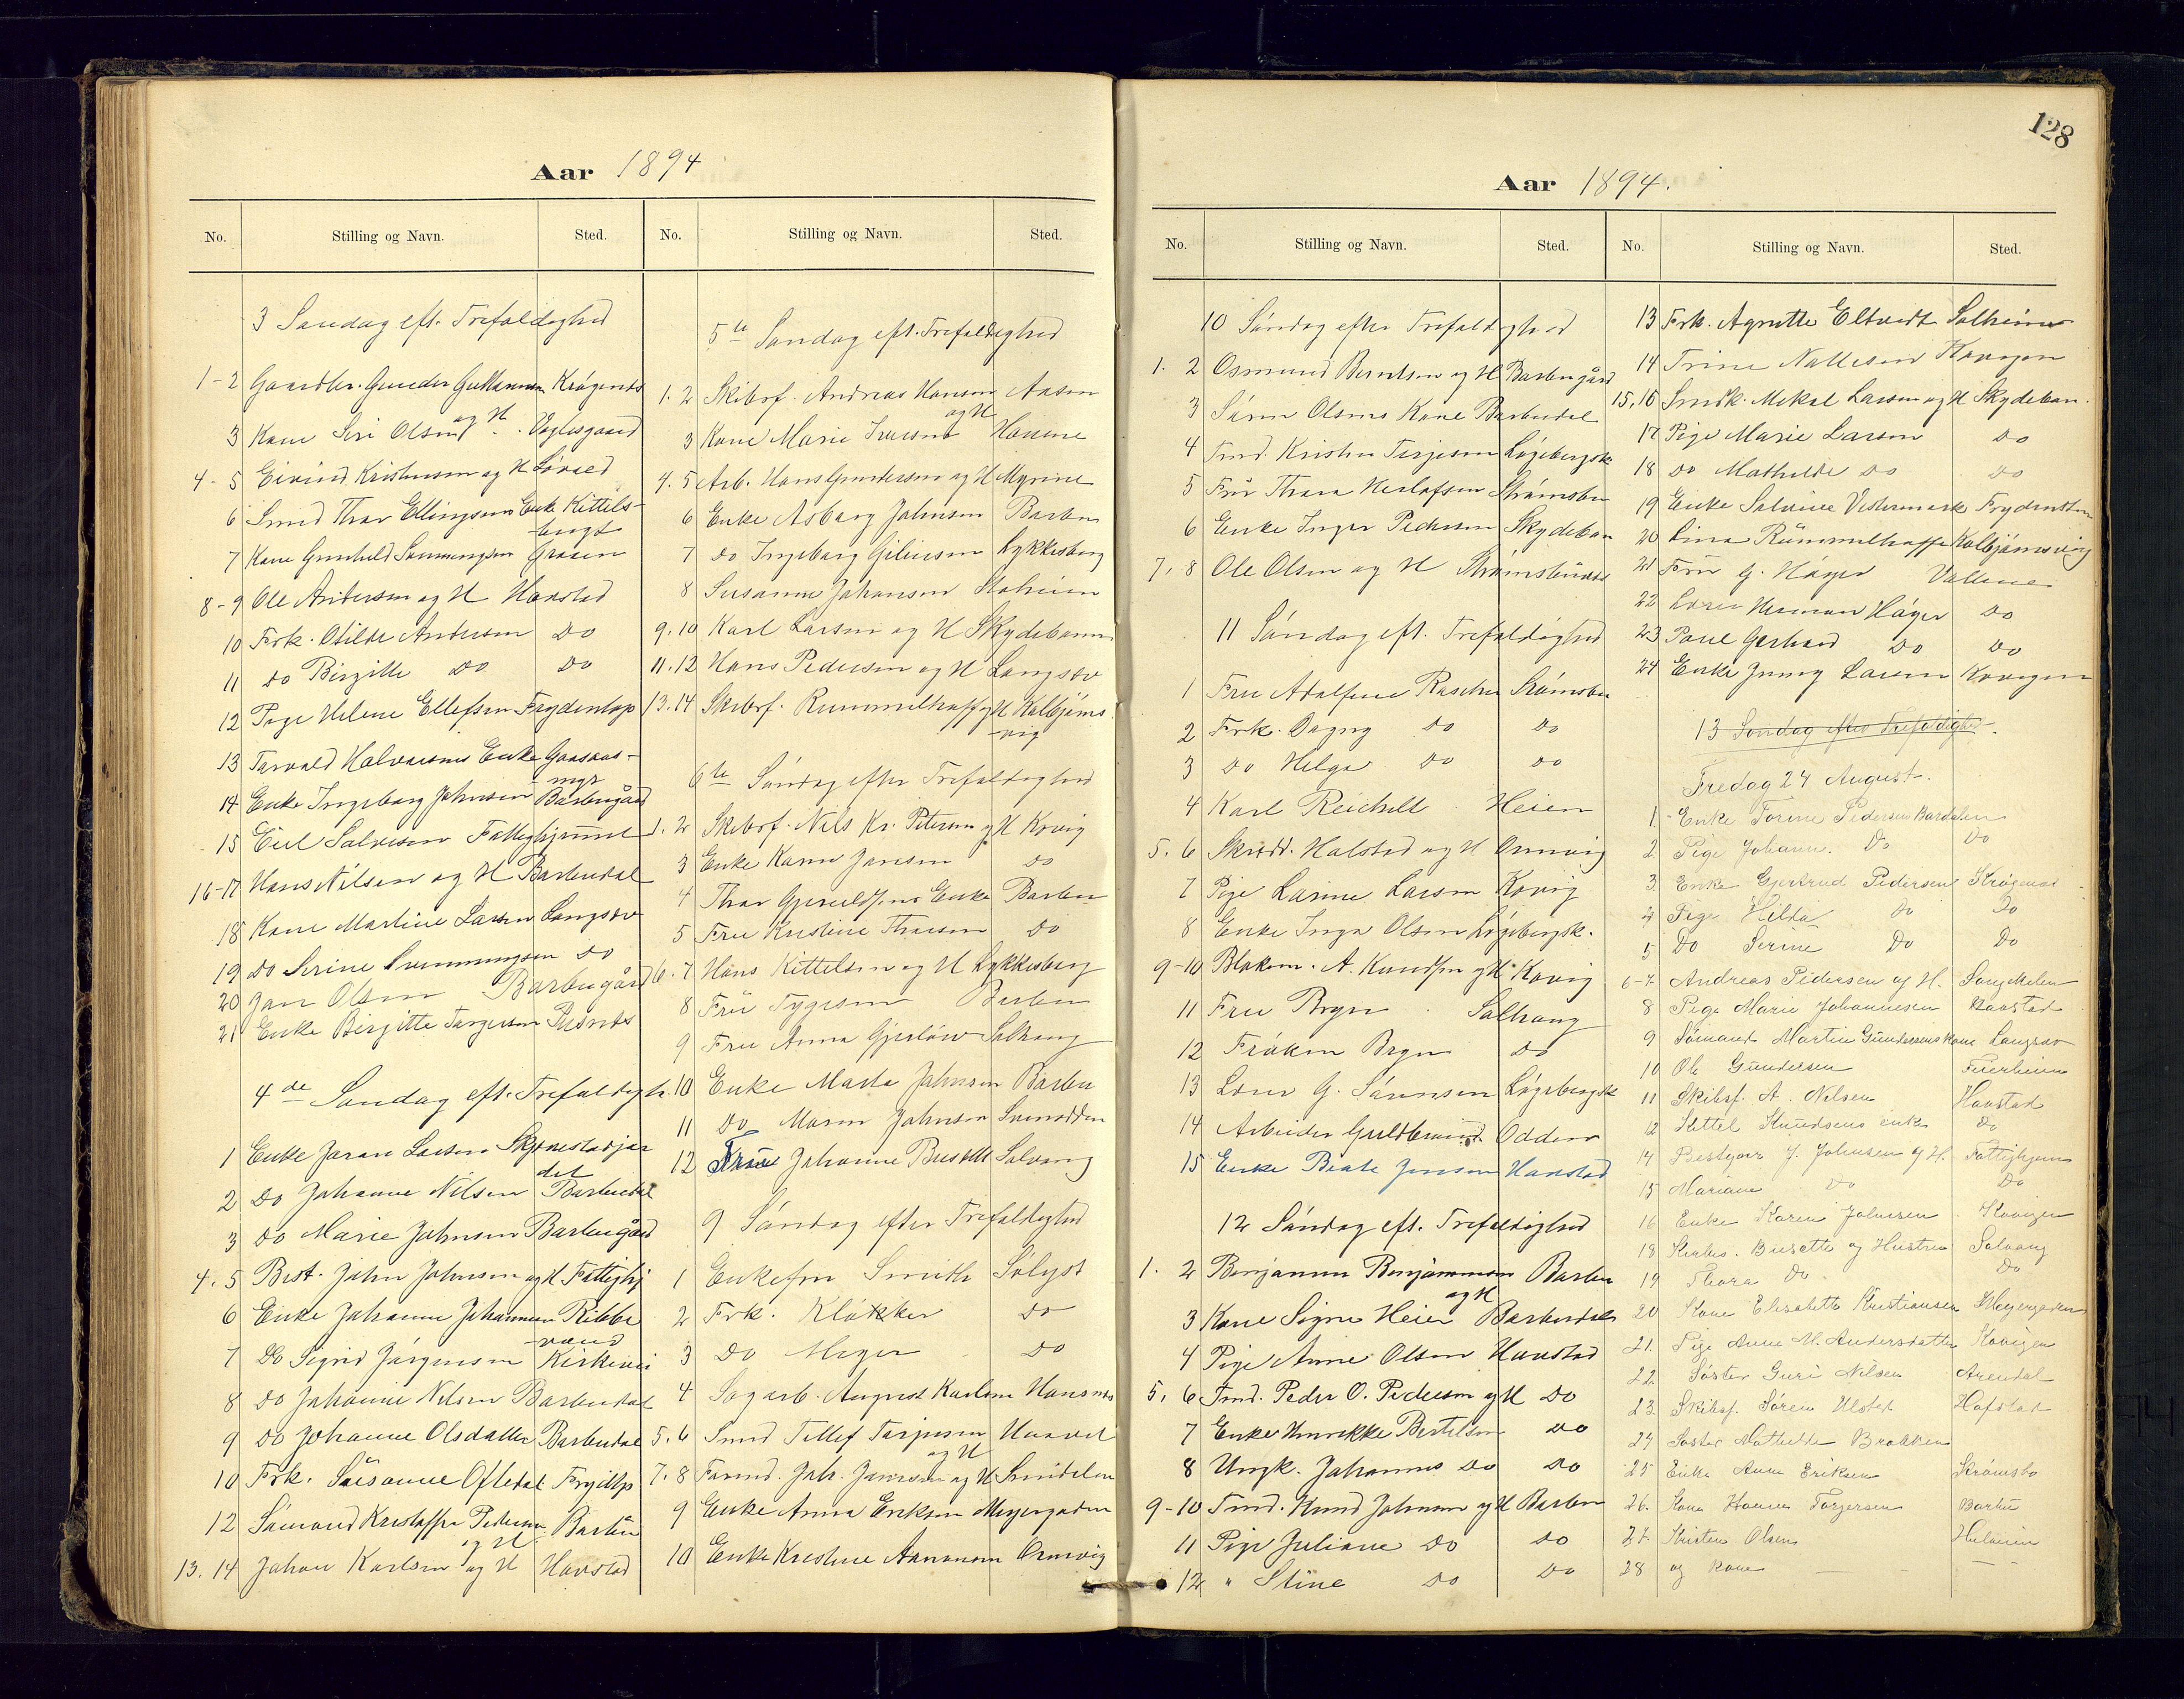 Aar 1894
No. Stilling og Navn. Sted.
3 Søndag eft. Trefoldighed
1-2 Gaardbr. Gunder Krøgenes
og H
3 Kone Siri Olsen Voglesgaard
4-5 Eivind Kristensen og H
6 Smed Thor Ellingsens Enke Kittels-
bugt
7 Kone Gunhild Græsen
8-9 Ole Andersen og H Havstad
10 Frk. Otilde Andersen Do
11 Do Birgitte Do Do
12 Pige Helene Ellefsen
13 Torvald Halvorsens Enke Gaasaas-
myr
14 Enke Ingeborg Johnsen Barbugård
15 Salvesen
16-17 Hans Nilsen og H Barbudal
18 Kone Martine Larsen Langsæv
19 Do Serine Svenningsen Do
20 Jan Olsen Barbugård
21 Enke Birgitte Torgersen
4de Søndag eft. Trefoldigh.
1 Enke Larsen
2 Do Johanne Nilsen Barbudal
3 Do Marie Johnsen Barbugård
4.5 Best. John Johnsen og H Fattighj
6 Enke Johanne Johannesen Ribbe
rœnd
7 Do Sigrid Jørgensen Kirkevei
8 Do Johanne Nilsen Barbudal
9 Do Johanne Olsdatter Barbudal
10 Frk. Susanne Oftedal
12 Sømand Kristoffer Pedersen Barbu
og H
13.14 Johan Karlsen og H Havstad
No. Stilling og Navn. Sted.
5te Søndag eft. Trefoldighed
1.2 Skibsf. Andreas Hansen Aasen
og H
3 Kone Marie Iversen Hamme
4.5 Arb. Hans Gundersen og H Myrene
6 Enke Asborg Johnsen Barbu
7 Do Ingeborg Lykkesborg
8 Susanne Johansen Solheim
9.10 Karl Larsen og H Skydebanen
11.12 Hans Pedersen og H Langsæv
13.14 Skibsf. Rummelhoff og H Kolbjørns
vig
6te Søndag efter Trefoldighed
1.2 Skibsf. Nils Kr. Petersen og H Kovig
3 Enke Karen Jansen Do
4 Thor Enke Barbu
5 Fru Kristine Do
6.7 Hans Kittelsen og H Lykkesborg
8 Fru Tygesen Barbu
9 Fru Anna Gjerløw Solvang
10 Enke Marta Johnsen Barbu
11 Do Maren Johnsen Svenodden
12 Frue Johanne Busett Solvang
9 Søndag efter Trefoldighed
1 Enkefru Smith Sølyst
2 Frk. Kløkker Do
3 Do Meyer Do
4 Sagarb. August Karlsen
5.6 Smed Tellef Terjesen
og H
7.8 Tømmd. Joh. Jansen og H
9 Enke Anna Eriksen Meyergaden
10 Enke Kristine Aanonsen Ormvig
128
Aar 1894.
No. Stilling og Navn. Sted.
10 Søndag efter Trefoldighed
1.2 Osmund Berntsen og H Barbugård
3 Søren Olsens Kone Barbudal
4 Tmd. Kristen Terjesen Løgebergsk
5 Fru Thora Herlofsen Strømsbu
6 Enke Inger Pedersen Skydeban
7.8 Ole Olsen og H
11 Søndag eft. Trefoldighed
1 Fru Adolfine Rascher Strømsbu
2 Frk. Dagny Do Do
3 Do Helga Do Do
4 Karl Reichelt Heien
5.6 Skrædd. Halsted og H Ormvig
7 Pige Larine Larsen Kovig
8 Enke Inga Olsen Løgebergsk.
9-10 Blokm. A. Knudsen og H Kovig
11 Fru Bryn Solvang
12 Frøken Bryn Do
13 Lærer G. Sørensen Løgebergsk
14 Arbeider Guldbrand Odden
15 Enke Beate Jensen Havstad
12 Søndag eft. Trefoldighed
1.2 Benjamin Benjaminsen Barbu
og H
3 Kone Signe Heier Barbudal
4 Pige Anne Olsen Havstad
5.6 Tmd. Peder O. Pedersen og H Do
7 Enke Henrikke Bertelsen Do
8 Ungk. Johannes Do Do
9-10 Tmd. Knud Johnsen og H Barbu
11 Pige Juliane Do Do
12 " Stine Do Do
No. Stilling og Navn. Sted.
13 Frk. Agnette Eltvedt Solheim
14 Trine Nallesen Kovigen
15.16 Smedk. Mikal Larsen og H Skydeban.
17 Pige Marie Larsen Do
18 Do Mathilde Do Do
19 Enke Salvine Vestermark
20 Lina Rummelhoff Kolbjørnsvig
21 Fru G. Høyer Vallene
22 Lærer Herman Høyer Do
23 Poul Gerhard Do Do
24 Enke Jenny Larsen Kovigen
13 Søndag efter Trefoldighed.
Fredag 24 August.
1 Enke Torine Pedersen Bardalen
2 Pige Johanne Do Do
3 Enke Gjertrud Pedersen Krøgenæs
4 Pige Hilda Do Do
5 Do Serine Do Do
6-7 Andreas Pedersen og H.
8 Pige Marie Johannesen Havstad
9 Sømand Martin Gundersens Kone Langsæv
10 Ole Gundersen
11 Skibsf. A. Nilsen Havstad
12 Kittel Knudsens enke Do
14 J. Johnsen og H. Fattighjem
15 Mariane Do Do
16 Enke Karen Johnsen Kovigen
18 Busette og Hustru Solvang
19 Thora Do Do
20 Kone Elisabeth Kristiansen Meyergaden
21. Pige Anne M. Andersdatter Kovigen
22. Søster Guri Nilsen Arendal
23. Skibsf. Søren Ulsted Hafstad
24 Søster Mathilde Brække
25 Enke Anne Eriksen Strømsbo
26. Kone Hanna Torjersen Barbu
27. Kristen Olsen
28 og kone